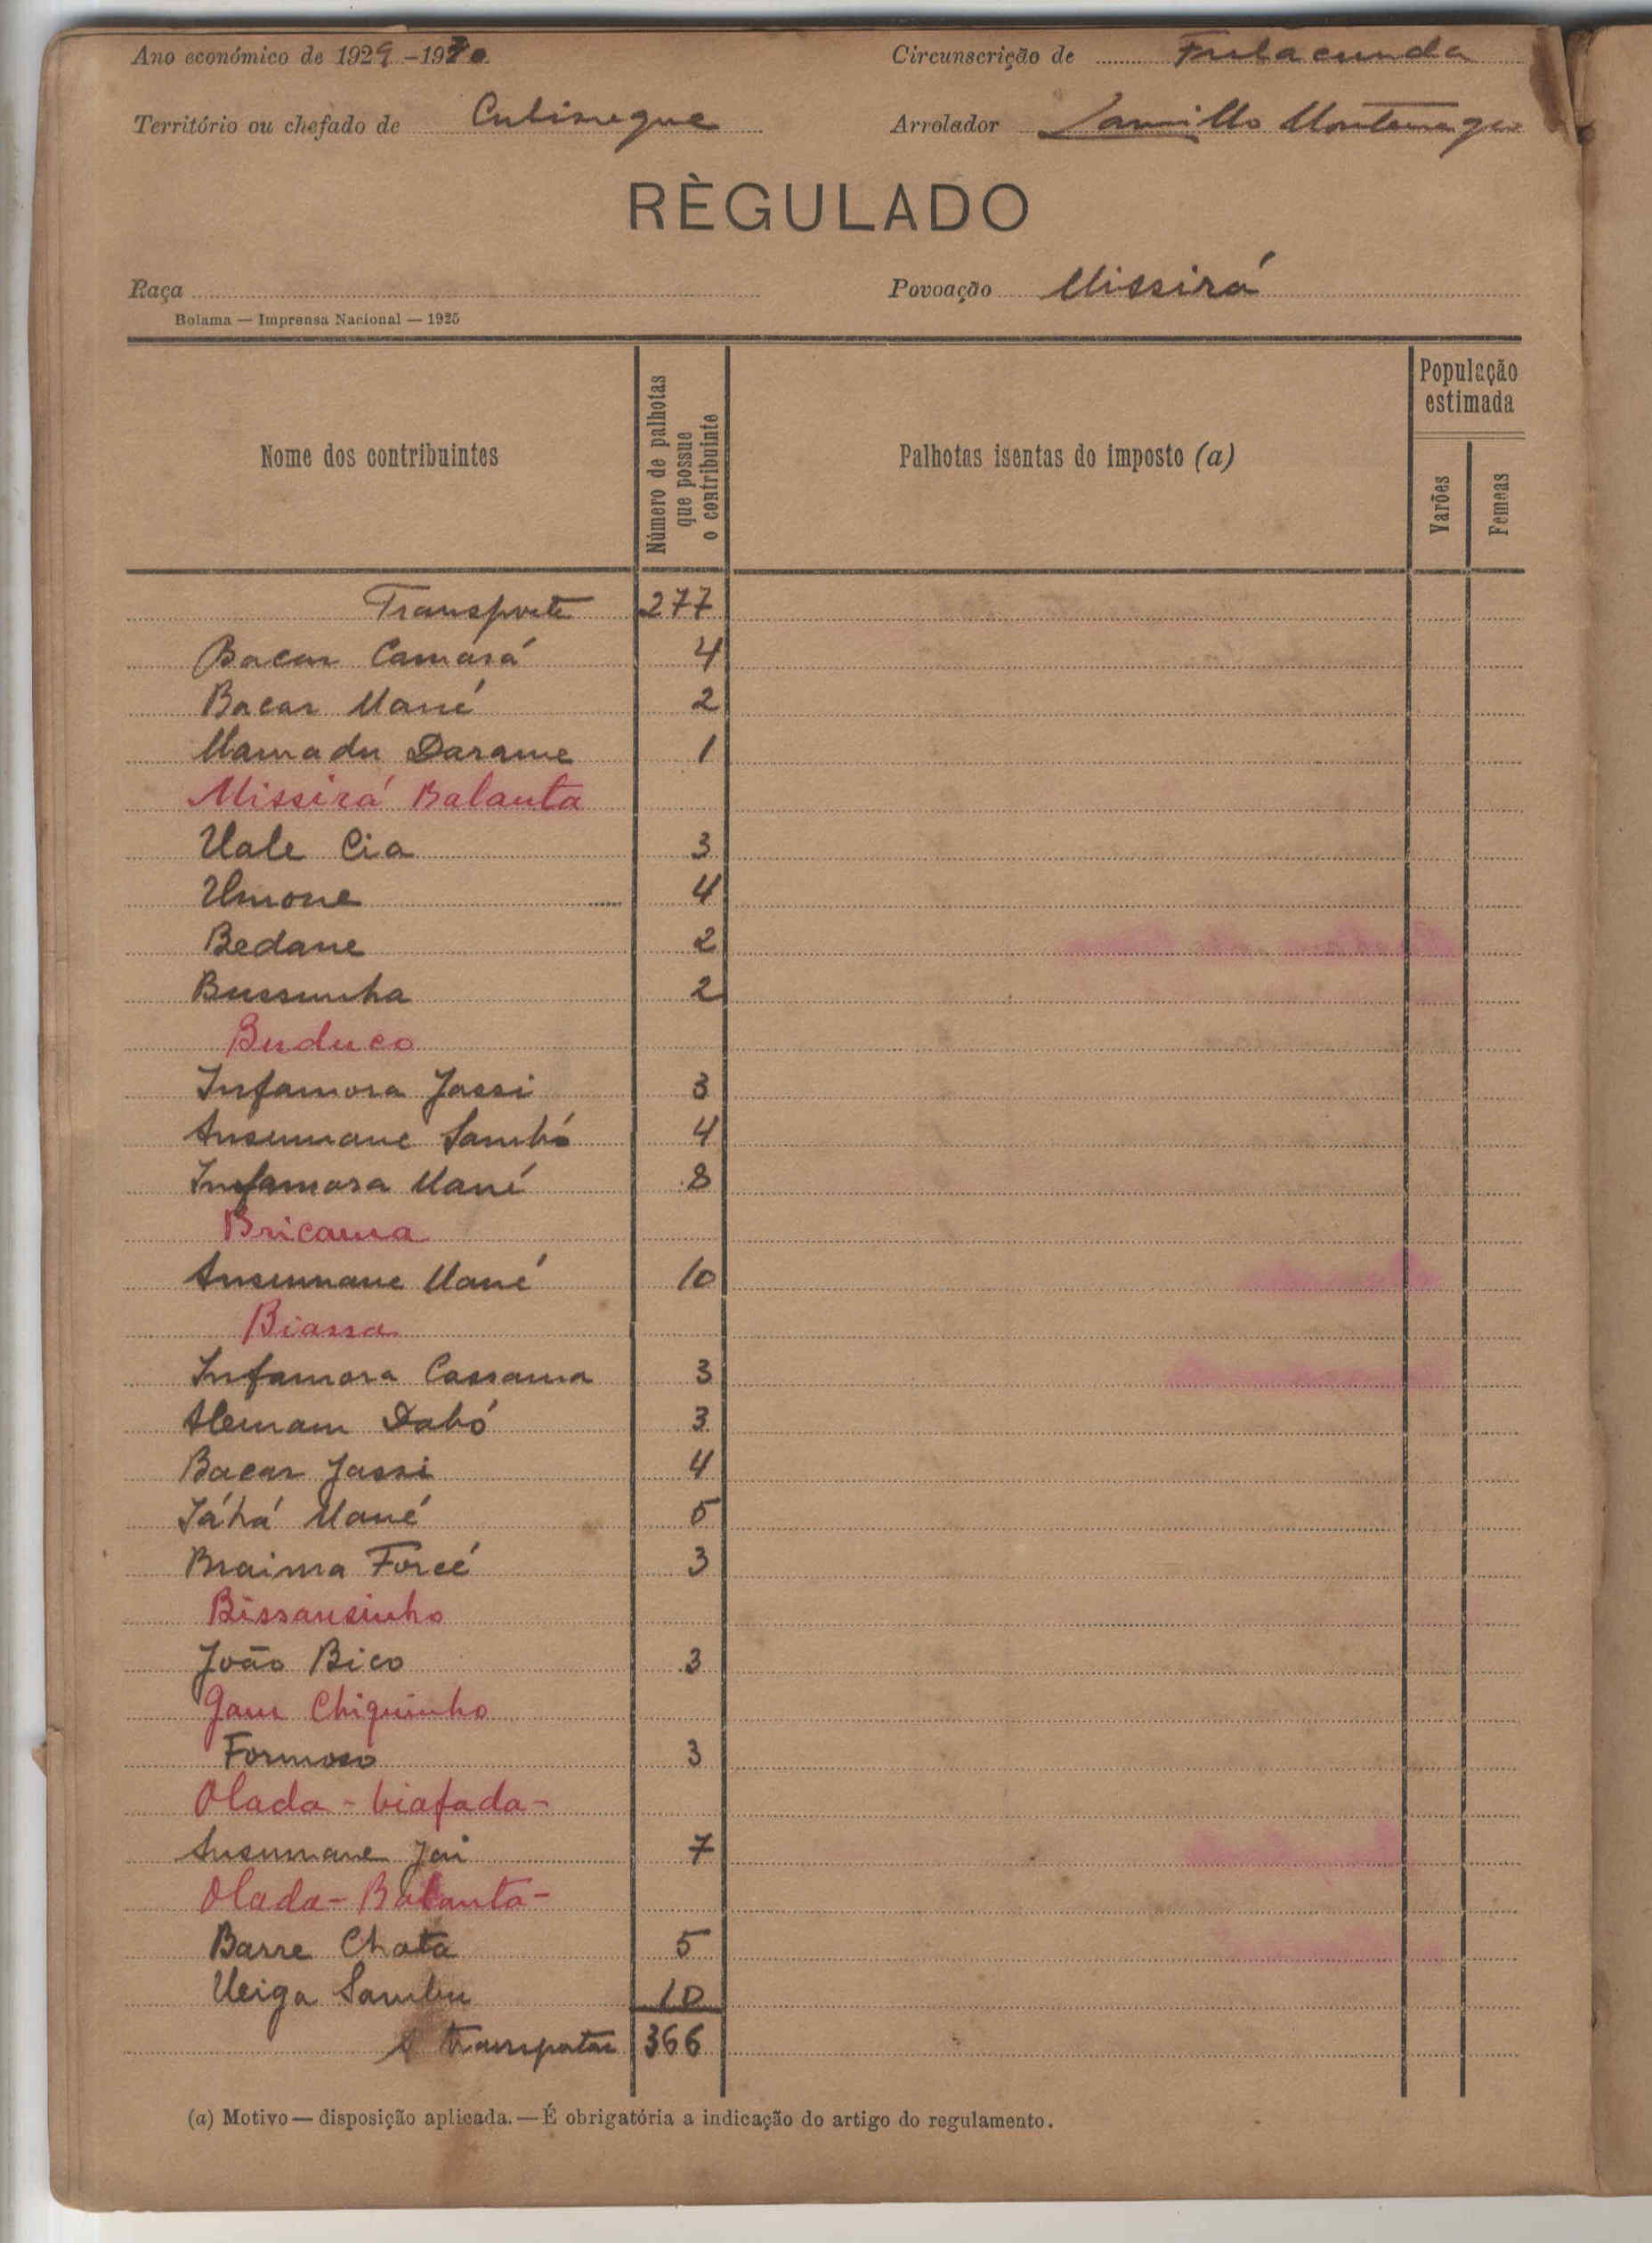 Ano económico de 1929-1930 Circunscrição de Fulacunda
Território ou chefado de Cubisseque Arrolador Camillo Montenegro
RÈGULADO
Raça Povoação Missirá
Bolama — Imprensa Nacional — 1925
Nome dos contribuintes
Número de palhotas que possue o contribuinte
Palhotas isentas do imposto (a)
População estimada
Varões
Femeas
Transporte 277
Bacar Camará 4
Bacar Mané 2
Mamadu Darame 1
Missirá Balanta
Uale Cia 3
Umone 4
Bedane 2
Bussunha 2
Buduco
Infamora Jassi 3
Ansumane Sambú 4
Infamora Mané 8
Bricama
Ansumane Mané 10
Biassa
Infamora Cassama 3
Alemam Dabó 3
Bacar Jassi 4
Jábá Mané 5
Braima Forcé 3
Bissansinho
João Bico 3
Gam Chiquinho
Formoso 3
Olada - biafada -
Ansumane Jai 7
Olada - Balanta -
Barre Chata 5
Ueiga Sambu 10
A transportar 366
(a) Motivo — disposição aplicada. — É obrigatória a indicação do artigo do regulamento.